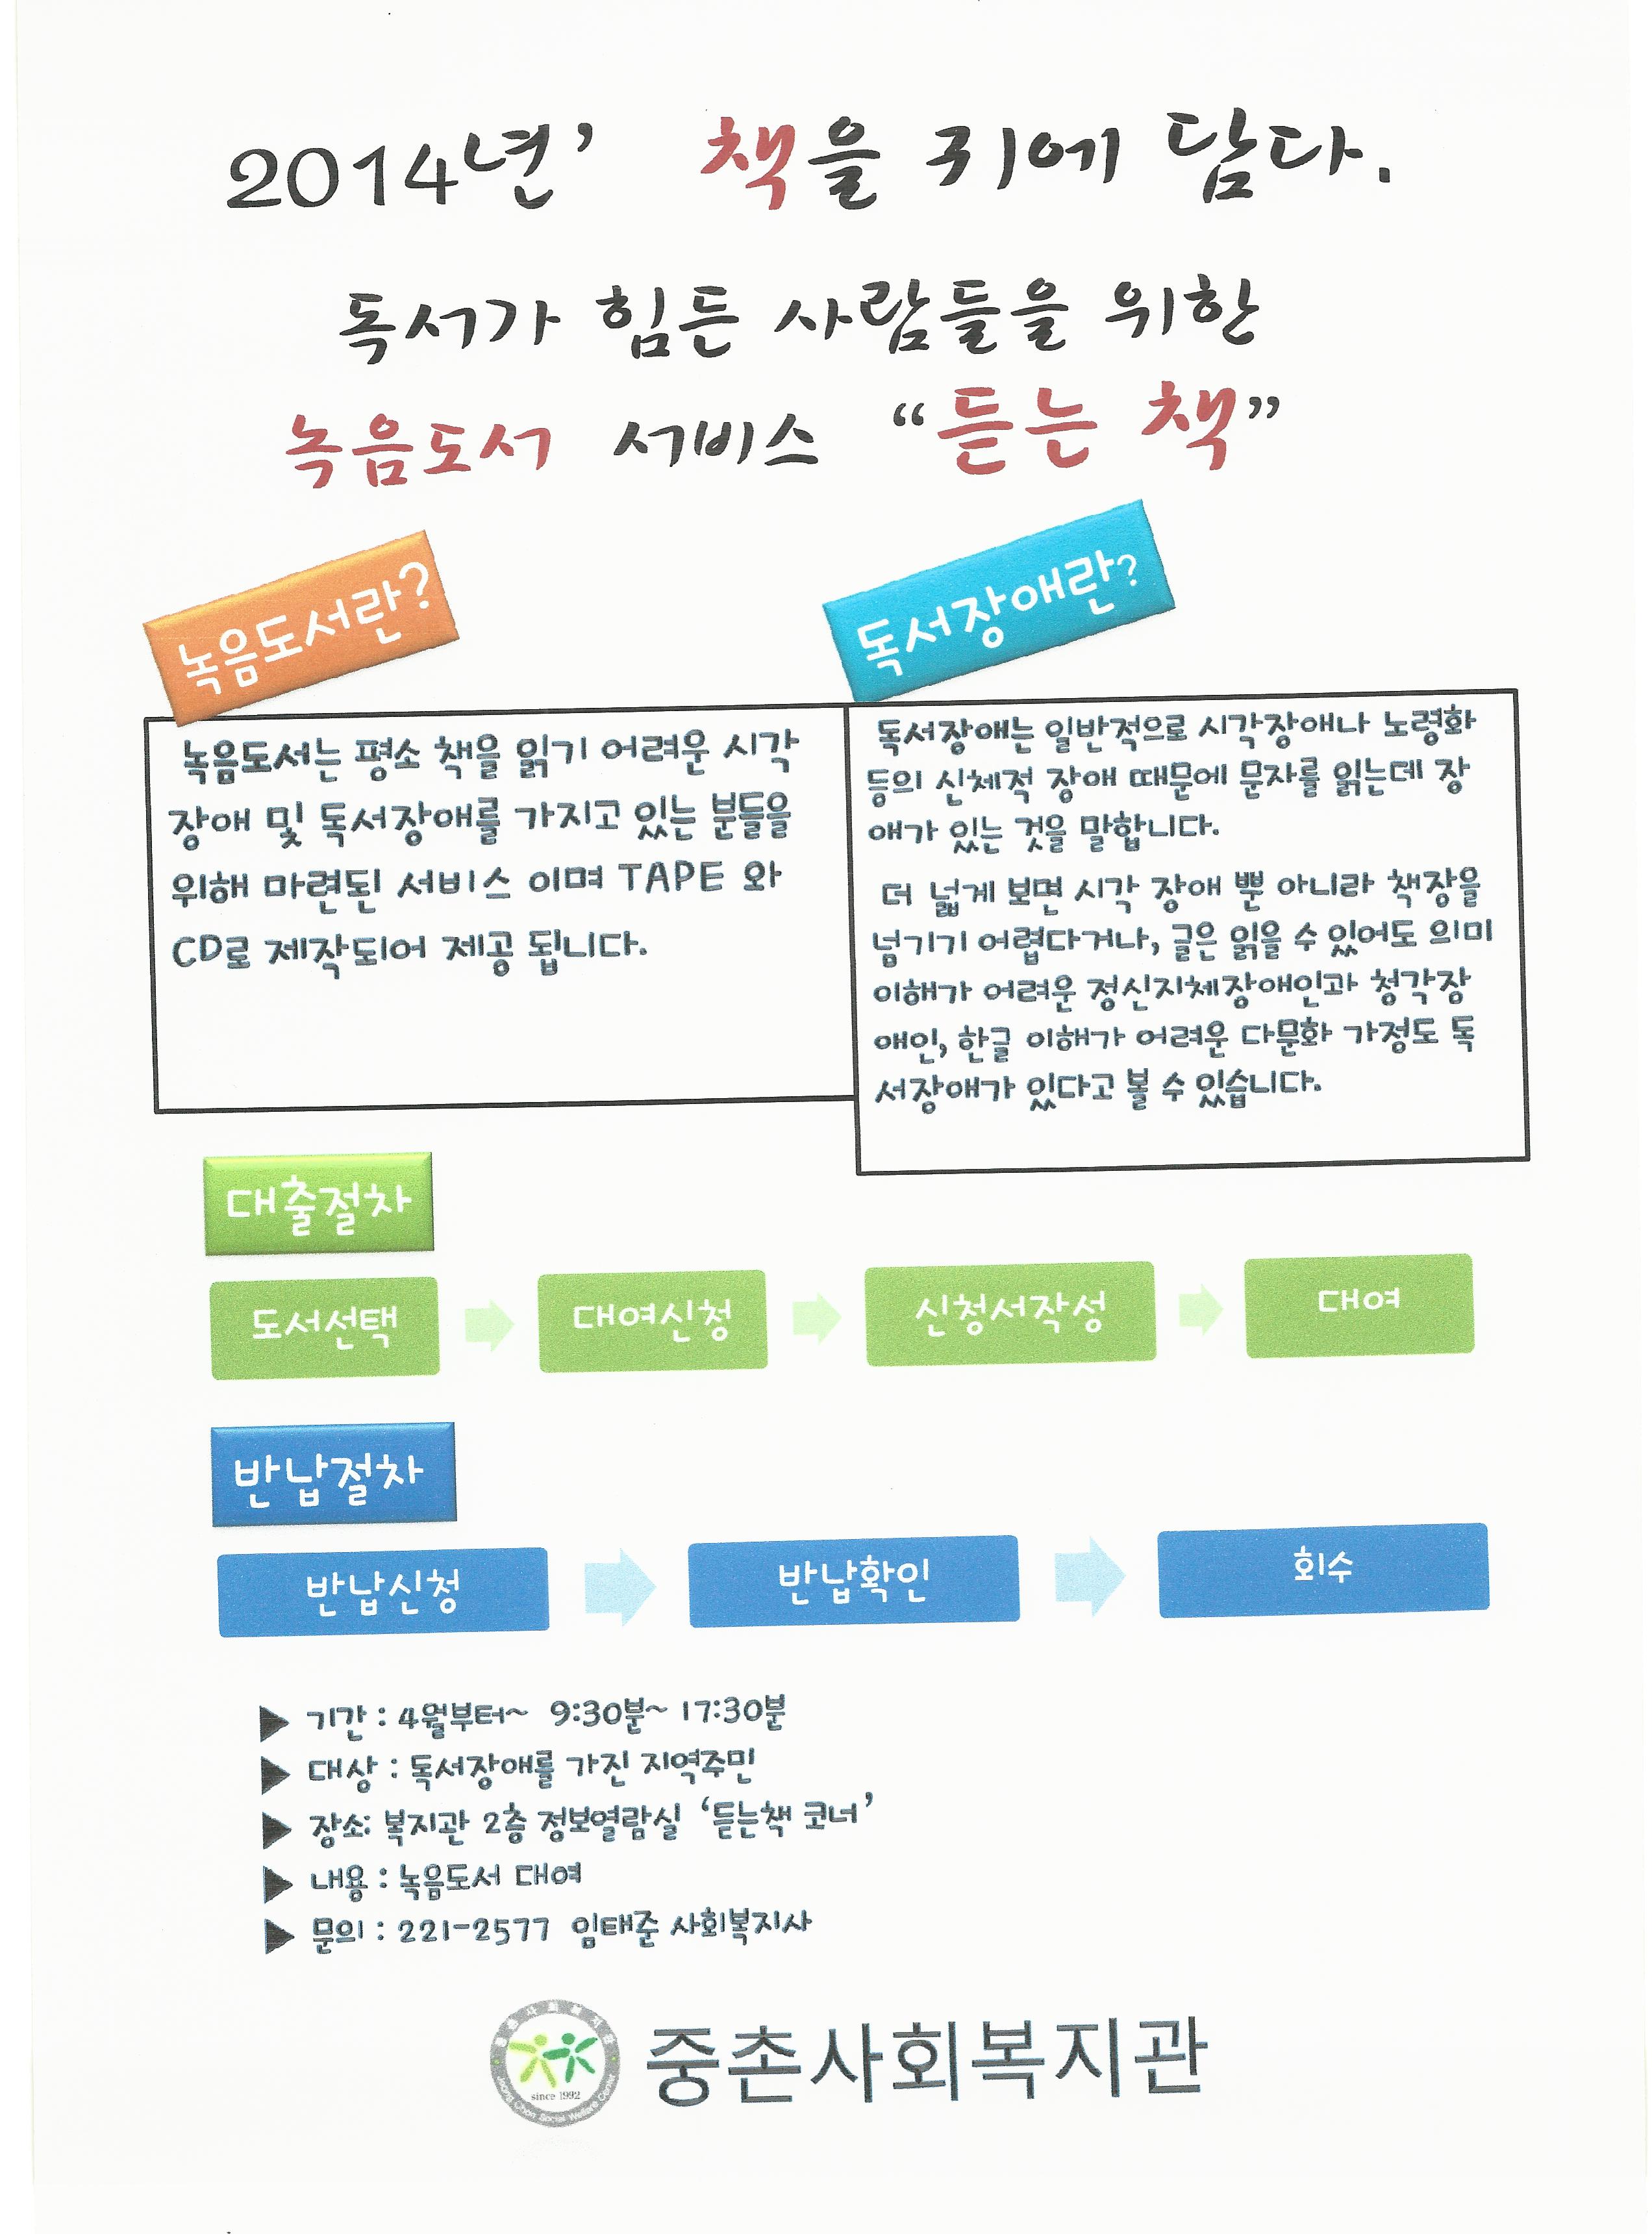 2014년’ 책을 귀에 담다.
독서가 힘든 사람들을 위한
녹음도서 서비스 “듣는 책”
녹음도서란?
녹음도서는 평소 책을 읽기 어려운 시각
장애 및 독서장애를 가지고 있는 분들을
위해 마련된 서비스 이며 TAPE 와
CD로 제작되어 제공 됩니다.
독서장애란?
독서장애는 일반적으로 시각장애나 노령화
등의 신체적 장애 때문에 문자를 읽는데 장
애가 있는 것을 말합니다.
더 넓게 보면 시각 장애 뿐 아니라 책장을
넘기기 어렵다거나, 글은 읽을 수 있어도 의미
이해가 어려운 정신지체장애인과 청각장
애인, 한글 이해가 어려운 다문화 가정도 독
서장애가 있다고 볼 수 있습니다.
대출절차
도서선택 대여신청 신청서작성 대여
반납절차
반납신청 반납확인 회수
▶ 기간 : 4월부터~ 9:30분~ 17:30분
▶ 대상 : 독서장애를 가진 지역주민
▶ 장소: 복지관 2층 정보열람실 ‘듣는책 코너’
▶ 내용 : 녹음도서 대여
▶ 문의 : 221-2577 임태준 사회복지사
중촌사회복지관
since 1992
Social Welfare Center
중촌사회복지관